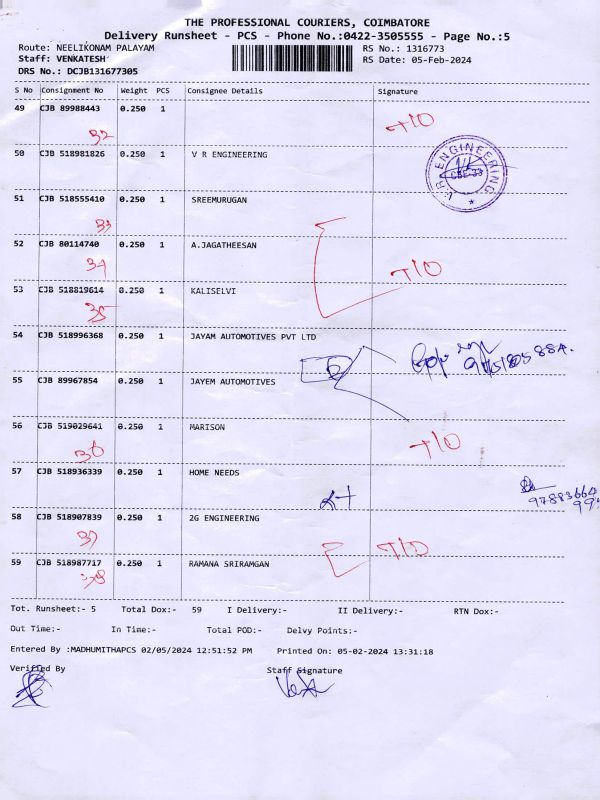 THE PROFESSIONAL COURIERS, COIMBATORE
Delivery Runsheet - PCS - Phone No.:0422-3505555 - Page No.:5
Route: NEELIKONAM PALAYAM RS No.: 1316773
Staff: VENKATESH RS Date: 05-Feb-2024
DRS No.: DCJB131677305
S No Consignment No Weight PCS Consignee Details Signature
49 CJB 89988443 0.250 1
32 T/O
50 CJB 518981826 0.250 1 V R ENGINEERING
V.R ENGINEERING
51 CJB 518555410 0.250 1 SREEMURUGAN
33
52 CJB 80114740 0.250 1 A.JAGATHEESAN
34 T/O
53 CJB 518819614 0.250 1 KALISELVI
35
54 CJB 518996368 0.250 1 JAYAM AUTOMOTIVES PVT LTD
55 CJB 89967854 0.250 1 JAYEM AUTOMOTIVES
56 CJB 519029641 0.250 1 MARISON
36 T/O
57 CJB 518936339 0.250 1 HOME NEEDS
58 CJB 518907839 0.250 1 2G ENGINEERING
37 T/O
59 CJB 518987717 0.250 1 RAMANA SRIRAMGAN
38
Tot. Runsheet:- 5 Total Dox:- 59 I Delivery:- II Delivery:- RTN Dox:-
Out Time:- In Time:- Total POD:- Delvy Points:-
Entered By :MADHUMITHAPCS 02/05/2024 12:51:52 PM Printed On: 05-02-2024 13:31:18
Verified By Staff Signature